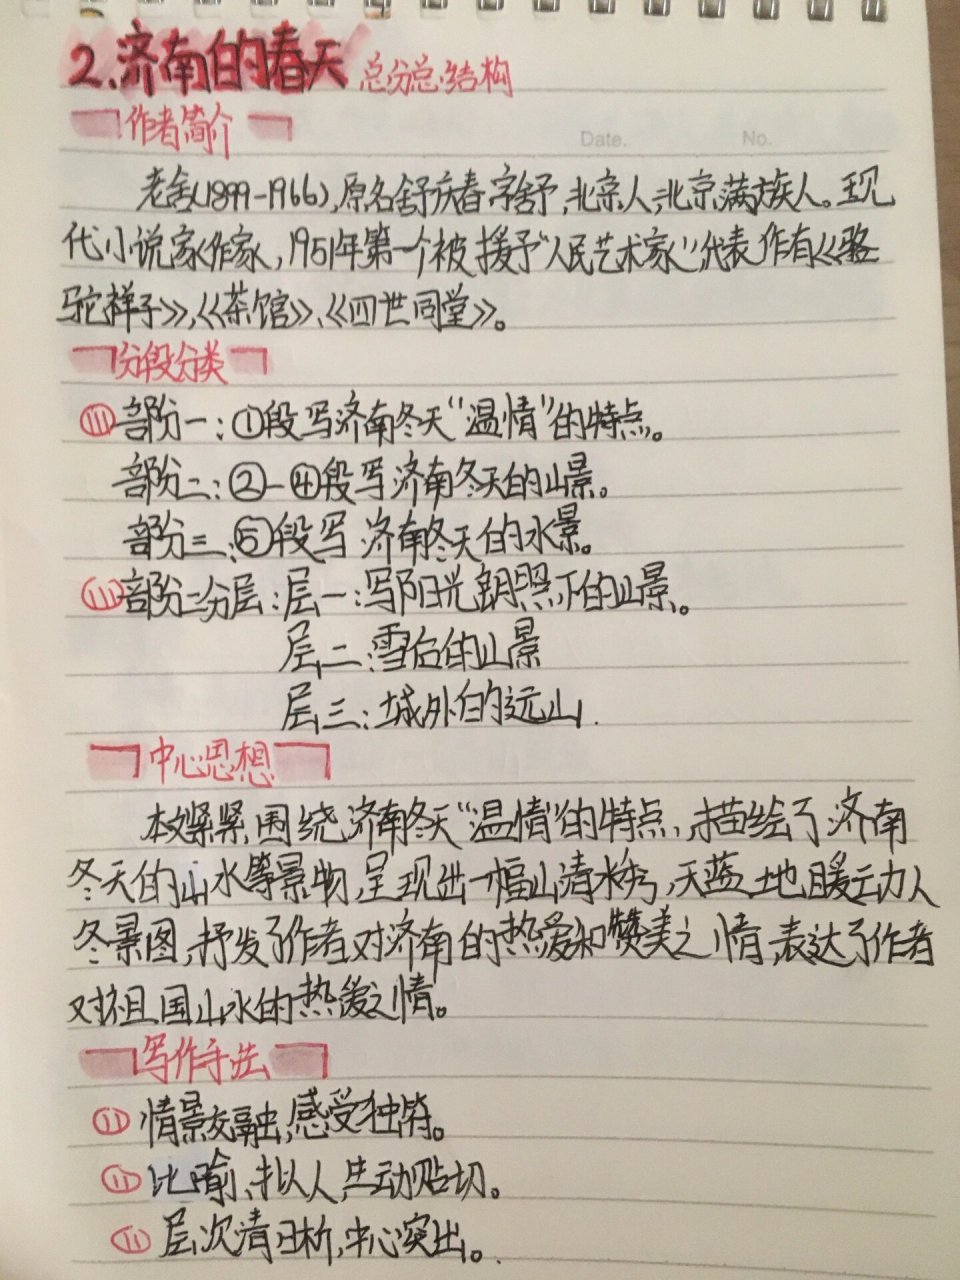 2.济南的春天 总分总结构
作者简介
Date. No.
老舍(1899-1966),原名舒庆春,字舍予,北京人,北京满族人。现
代小说家作家,1951年第一个被授予"人民艺术家",代表作有《骆
驼祥子》,《茶馆》、《四世同堂》。
分段分类
部分一:①段写济南冬天"温情"的特点。
部分二:②-④段写济南冬天的山景。
部分三:⑤段写济南冬天的水景。
部分二分层:层一:写阳光朗照下的山景。
层二:雪后的山景
层三:城外的远山.
中心思想
本文紧紧围绕济南冬天"温情"的特点,描绘了济南
冬天的山水等景物,呈现出一幅山清水秀,天蓝土地暖动人
冬景图,抒发了作者对济南的热爱和赞美之情,表达了作者
对祖国山水的热爱之情。
写作手法
情景交融,感受独特。
比喻、拟人,生动贴切。
层次清晰,中心突出。